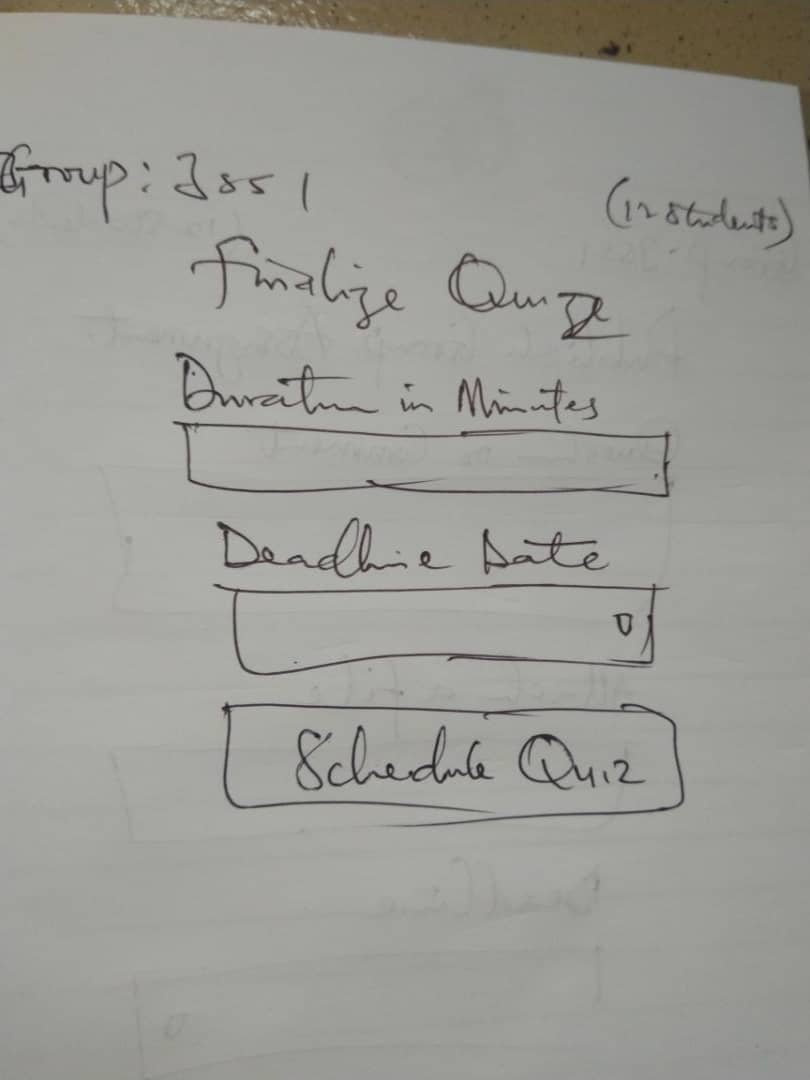 Group: JSS 1 (12 Students)
Finalize Quiz
Duration in Minutes
Deadline Date
Schedule Quiz